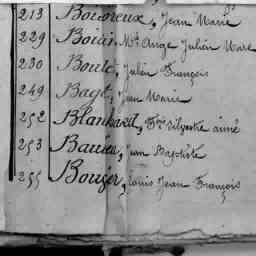 213 Bouvreux, Jean Marie
229 Boiais, Me Ange Julien Marc
230 Boulé, Julien François
249 Bagt, Jean Marie
252 Blanhard, Silvestre aimé
253 Baudu, Jean Baptiste
255 Bouger, Louis Jean François